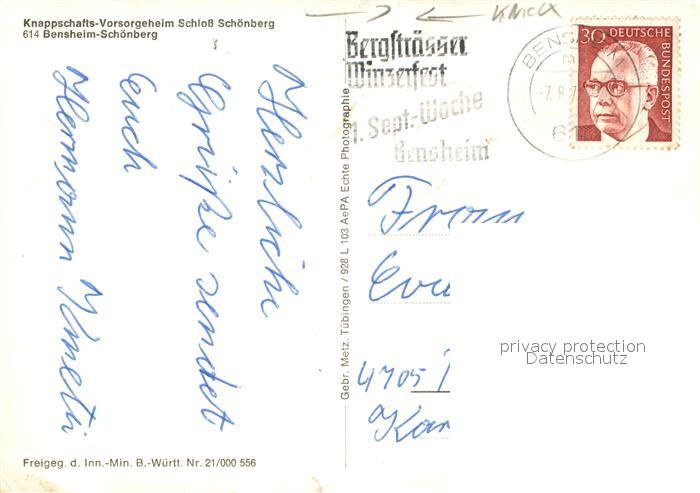 Knappschafts-Vorsorgeheim Schloß Schönberg
614 Bensheim-Schönberg
Herzliche
Grüße sendet
Euch
Hermann
Freigeg. d. Inn.-Min. B.-Württ. Nr. 21/000 556
Gebr. Metz, Tübingen / 928 L 103 AePA Echte Photographie
Knick
Bergsträsser
Winzerfest
1. Sept.-Woche
Bensheim
30 DEUTSCHE
BUNDESPOST
-7.8.7
Frau
4705
privacy protection
Datenschutz